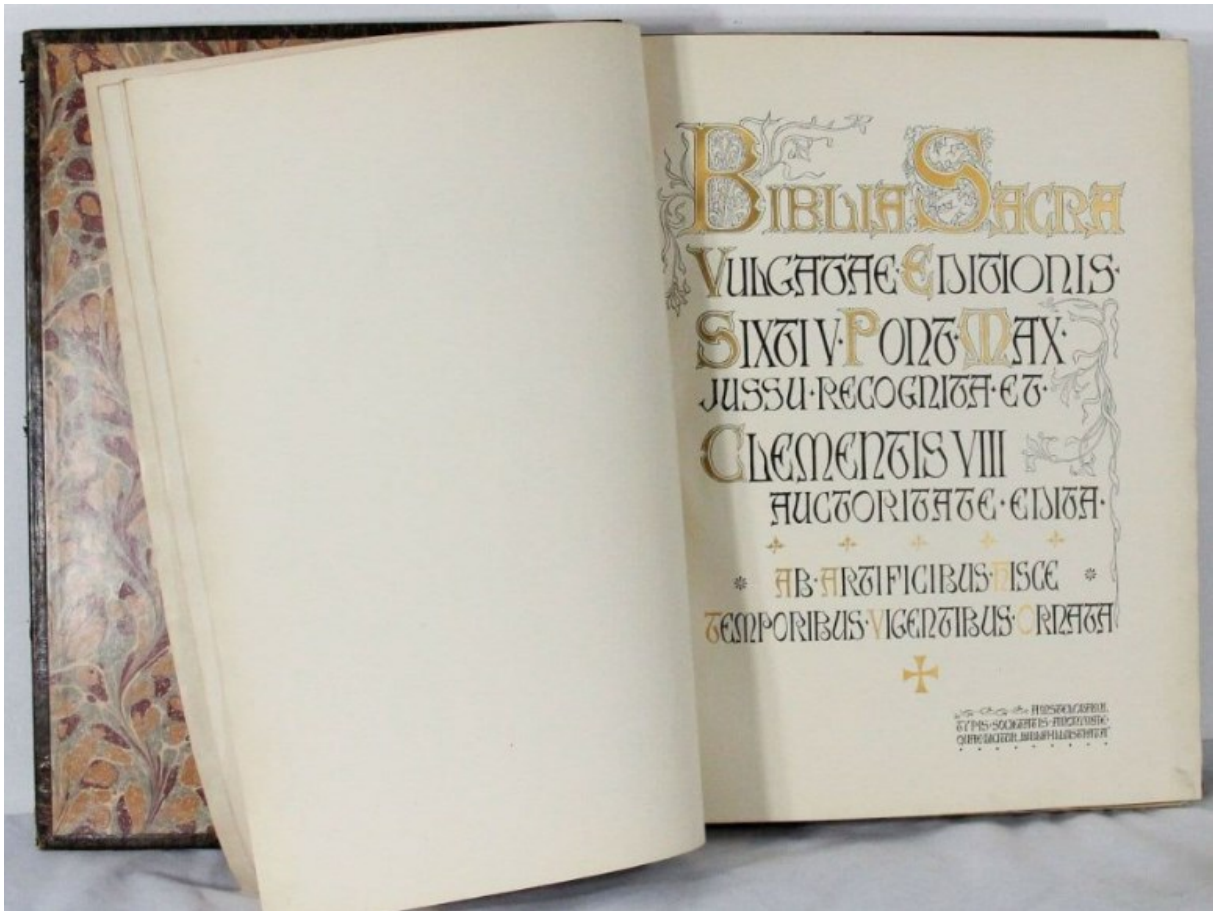 BIBLIA SACRA
VULGATAE·EDITIONIS·
SIXTI V·PONT·MAX·
JUSSU·RECOGNITA·ET·
CLEMENTIS VIII
AUCTORITATE·EDITA·
AB·ARTIFICIBUS·HISCE
TEMPORIBUS·VIGENTIBUS·ORNATA
AMSTELODAMI.
TYPIS·SOCIETATIS·ANONYMAE·
QUAE DICITUR „BIBLIA·ILLUSTRATA"